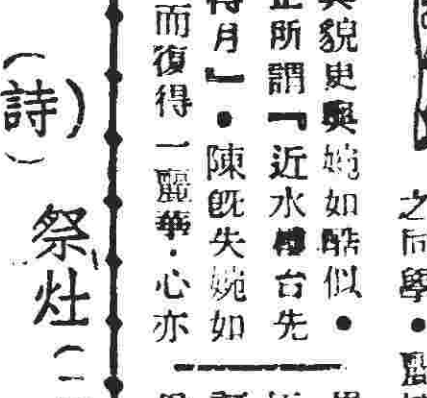 之同學●麗
貌史與婉如酷似●
所謂『近水樓台先
得月』●陳旣失婉如
而復得一麗華·心亦
(詩)祭灶(一